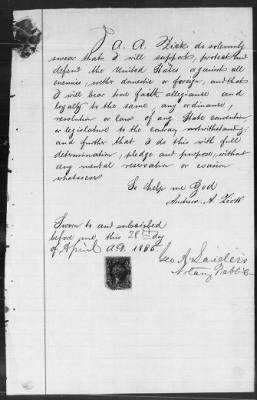 I A. A. Zick do solemnly
swear that I will support, protect and
defend the United States against all
enemies, wether domestic or foreign, and that
I will bear true faith, allegiance and
loyalty to the same, any ordinance,
resolution or law of any State convention
or legislature to the contrary notwithstanding;
and further that I do this with full
determination, pledge and purpose, without
any mental reservation or evasion
whatsoever
So help me God
Andrew A. Zick
Sworn to and subscribed
before me, this 28th day
of April A.D. 1866.
Geo A. Saiders
Notary Public